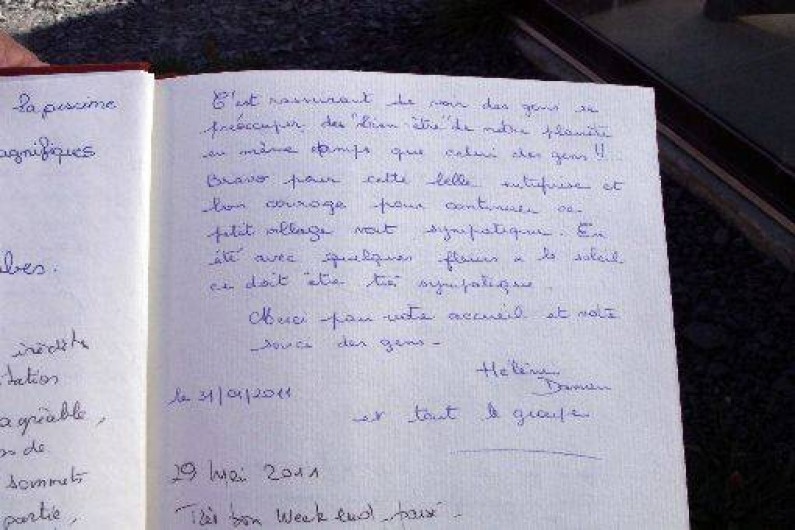 la piscine
agnifiques
bes.
inédite
tation
agréable,
s de
sommets
partie,
C'est rassurant de voir des gens se
préoccuper des "bien-être" de notre planète
en même temps que celui des gens !!
Bravo pour cette belle entreprise et
bon courage pour continuer ce
petit village vert sympatique. En
été avec quelques fleurs et le soleil
ce doit être très sympatique.
Merci pour votre accueil et votre
souci des gens -
Hélène
Damien
et tout le groupe
le 31/01/2011
29 Mai 2011
Très bon Week end passé.